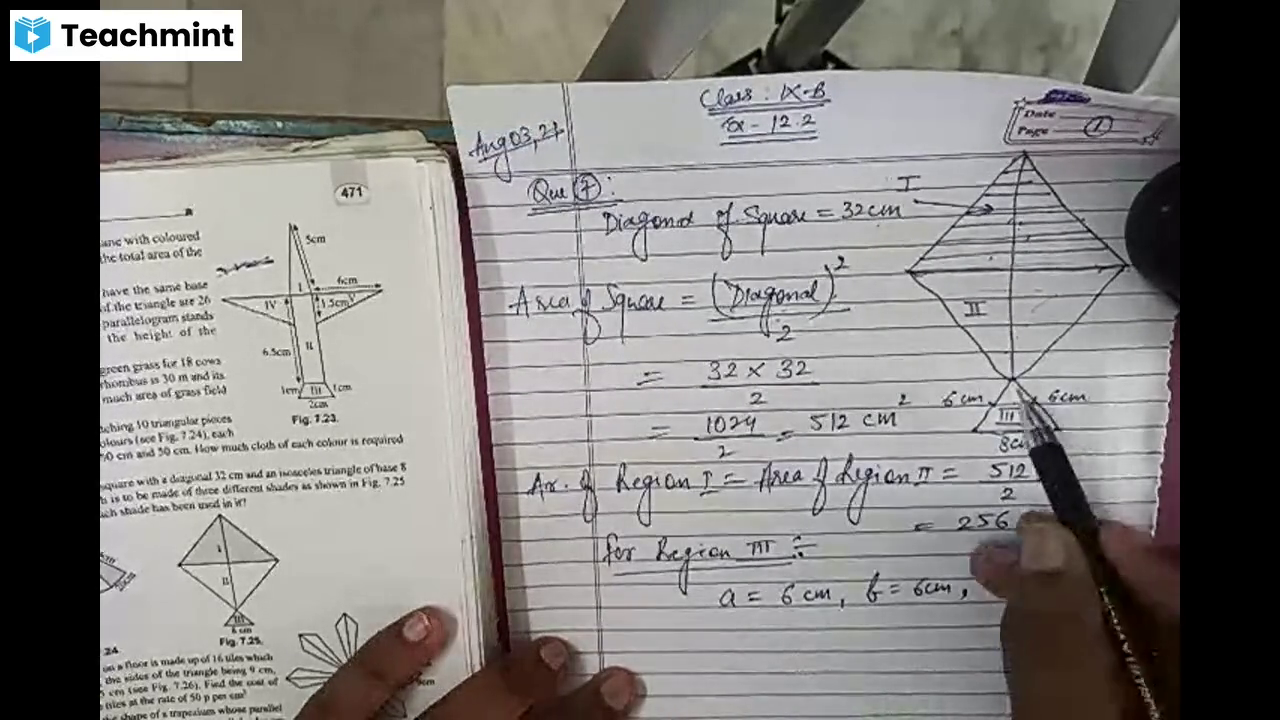 Teachmint
471
ane with coloured
the total area of the
have the same base
of the triangle are 26
parallelogram stands
the height of the
green grass for 18 cows
rhombus is 30 m and its
much area of grass field
ching 10 triangular pieces
olours (see Fig. 7.24), each
0 cm and 50 cm. How much cloth of each colour is required
square with a diagonal 32 cm and an isosceles triangle of base 8
is to be made of three different shades as shown in Fig. 7.25
ach shade has been used in it?
5cm
6cm
I
IV
1.5cm
V
II
6.5cm
1cm
III
1cm
2cm
Fig. 7.23
I
II
III
8 cm
Fig. 7.25
24
on a floor is made up of 16 tiles which
the sides of the triangle being 9 cm,
cm (see Fig. 7.26). Find the cost of
tiles at the rate of 50 p per cm²
the shape of a trapezium whose parallel
Class : IX-B
Ex - 12.2
Aug 03, 21
Date
Page 1
Que 7 :
Diagonal of Square = 32cm
I
Area of Square = (Diagonal)²
2
= 32 × 32
2
= 1024 = 512 cm²
2
II
6 cm
6cm
III
8cm
Ar. of Region I = Area of Region II = 512
2
= 256
for Region III :-
a = 6 cm, b = 6cm,